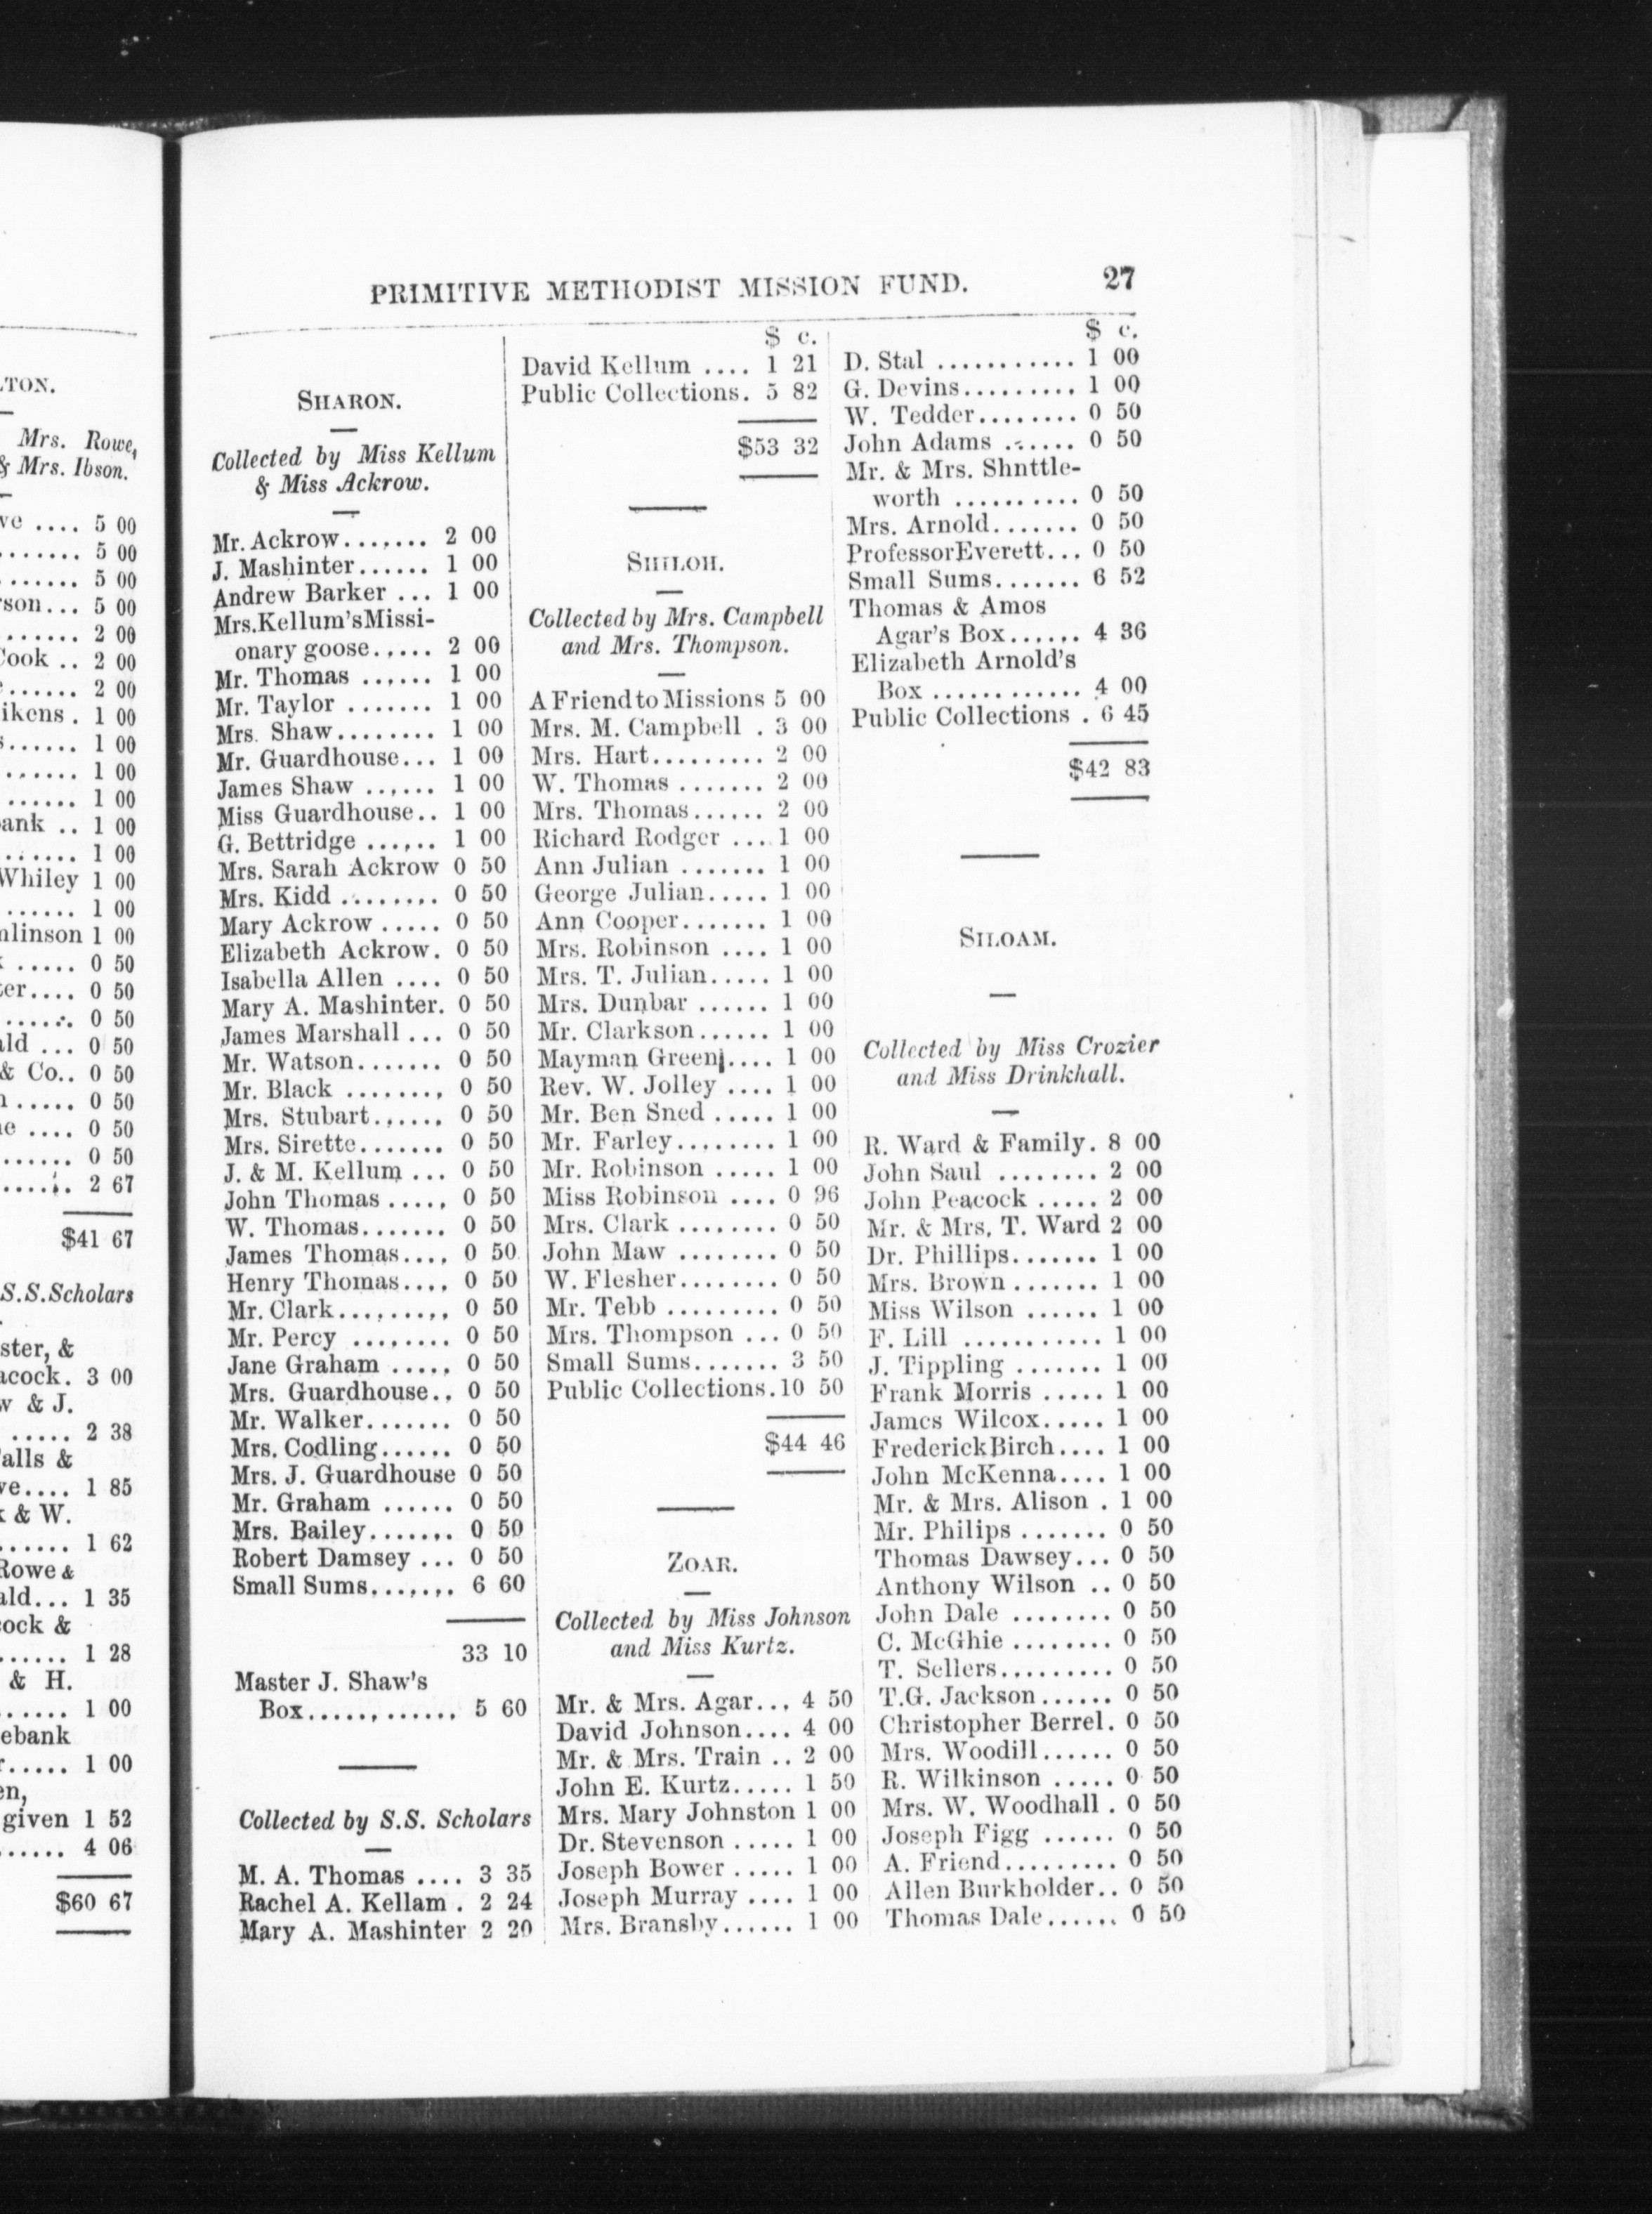 TON.
Mrs. Rowe,
& Mrs. Ibson.
.... 5 00
....... 5 00
...... 5 00
... 5 00
...... 2 00
Cook .. 2 00
...... 2 00
. 1 00
...... 1 00
...... 1 00
...... 1 00
.. 1 00
...... 1 00
Whiley 1 00
...... 1 00
1 00
..... 0 50
.... 0 50
...... 0 50
... 0 50
& Co.. 0 50
..... 0 50
.... 0 50
...... 0 50
...... 2 67
$41 67
S.S.Scholars
&
. 3 00
& J.
..... 2 38
&
.... 1 85
& W.
...... 1 62
Rowe &
... 1 35
&
...... 1 28
& H.
...... 1 00
..... 1 00
given 1 52
...... 4 06
$60 67
PRIMITIVE METHODIST MISSION FUND. 27
SHARON.
Collected by Miss Kellum
& Miss Ackrow.
Mr. Ackrow....... 2 00
J. Mashinter...... 1 00
Andrew Barker ... 1 00
Mrs.Kellum'sMissi-
onary goose...... 2 00
Mr. Thomas ...... 1 00
Mr. Taylor ....... 1 00
Mrs. Shaw........ 1 00
Mr. Guardhouse... 1 00
James Shaw ...... 1 00
Miss Guardhouse.. 1 00
G. Bettridge ...... 1 00
Mrs. Sarah Ackrow 0 50
Mrs. Kidd ........ 0 50
Mary Ackrow ..... 0 50
Elizabeth Ackrow. 0 50
Isabella Allen .... 0 50
Mary A. Mashinter. 0 50
James Marshall ... 0 50
Mr. Watson....... 0 50
Mr. Black ....... 0 50
Mrs. Stubart...... 0 50
Mrs. Sirette....... 0 50
J. & M. Kellum ... 0 50
John Thomas ..... 0 50
W. Thomas....... 0 50
James Thomas.... 0 50
Henry Thomas.... 0 50
Mr. Clark......... 0 50
Mr. Percy ........ 0 50
Jane Graham ..... 0 50
Mrs. Guardhouse.. 0 50
Mr. Walker....... 0 50
Mrs. Codling...... 0 50
Mrs. J. Guardhouse 0 50
Mr. Graham ...... 0 50
Mrs. Bailey....... 0 50
Robert Damsey ... 0 50
Small Sums....... 6 60
33 10
Master J. Shaw's
Box............ 5 60
Collected by S.S. Scholars
M. A. Thomas .... 3 35
Rachel A. Kellam . 2 24
Mary A. Mashinter 2 20
$ c.
David Kellum .... 1 21
Public Collections. 5 82
$53 32
SHILOH.
Collected by Mrs. Campbell
and Mrs. Thompson.
A Friend to Missions 5 00
Mrs. M. Campbell . 3 00
Mrs. Hart......... 2 00
W. Thomas ....... 2 00
Mrs. Thomas...... 2 00
Richard Rodger .... 1 00
Ann Julian ....... 1 00
George Julian..... 1 00
Ann Cooper....... 1 00
Mrs. Robinson .... 1 00
Mrs. T. Julian..... 1 00
Mrs. Dunbar ...... 1 00
Mr. Clarkson...... 1 00
Mayman Green.... 1 00
Rev. W. Jolley .... 1 00
Mr. Ben Sned ..... 1 00
Mr. Farley........ 1 00
Mr. Robinson ..... 1 00
Miss Robinson .... 0 96
Mrs. Clark ........ 0 50
John Maw ........ 0 50
W. Flesher........ 0 50
Mr. Tebb ......... 0 50
Mrs. Thompson ... 0 50
Small Sums....... 3 50
Public Collections.10 50
$44 46
ZOAR.
Collected by Miss Johnson
and Miss Kurtz.
Mr. & Mrs. Agar... 4 50
David Johnson.... 4 00
Mr. & Mrs. Train .. 2 00
John E. Kurtz..... 1 50
Mrs. Mary Johnston 1 00
Dr. Stevenson ..... 1 00
Joseph Bower ..... 1 00
Joseph Murray .... 1 00
Mrs. Bransby...... 1 00
$ c.
D. Stal ........... 1 00
G. Devins......... 1 00
W. Tedder........ 0 50
John Adams ...... 0 50
Mr. & Mrs. Shnttle-
worth .......... 0 50
Mrs. Arnold....... 0 50
ProfessorEverett... 0 50
Small Sums....... 6 52
Thomas & Amos
Agar's Box...... 4 36
Elizabeth Arnold's
Box ............ 4 00
Public Collections . 6 45
$42 83
SILOAM.
Collected by Miss Crozier
and Miss Drinkhall.
R. Ward & Family. 8 00
John Saul ........ 2 00
John Peacock ..... 2 00
Mr. & Mrs. T. Ward 2 00
Dr. Phillips....... 1 00
Mrs. Brown ....... 1 00
Miss Wilson ...... 1 00
F. Lill ........... 1 00
J. Tippling ....... 1 00
Frank Morris ..... 1 00
James Wilcox..... 1 00
FrederickBirch.... 1 00
John McKenna.... 1 00
Mr. & Mrs. Alison . 1 00
Mr. Philips ....... 0 50
Thomas Dawsey... 0 50
Anthony Wilson .. 0 50
John Dale ........ 0 50
C. McGhie ........ 0 50
T. Sellers......... 0 50
T.G. Jackson...... 0 50
Christopher Berrel. 0 50
Mrs. Woodill...... 0 50
R. Wilkinson ..... 0 50
Mrs. W. Woodhall . 0 50
Joseph Figg ...... 0 50
A. Friend......... 0 50
Allen Burkholder.. 0 50
Thomas Dale...... 0 50